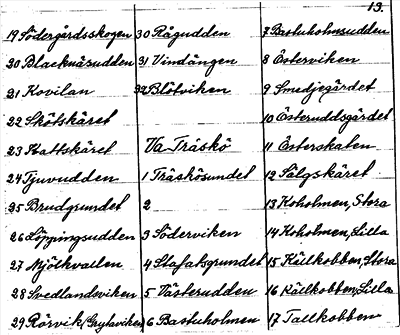 13.
19 Södergårdsskogen
20 Blacknäsudden
21 Kovilan
22 Skötskäret
23 Kattskäret
24 Tjuvudden
25 Brudgrundet
26 Löppingsudden
27 Mjölkvallen
28 Svedlandsviken
29 Rörvik/Grytaviken
30 Rågudden
31 Vindängen
32 Blötviken
Va Träskö
1 Träskösundet
2
3 Söderviken
4 Stafaksgrundet
5 Västerudden
6 Bastuholmen
7 Bastuholmsudden
8 Österviken
9 Smedjegärdet
10 Österuddsgärdet
11 Österskaten
12 Sälgskäret
13 Koholmen, Stora
14 Koholmen, Lilla
15 Källkobben, Stora
16 Källkobben, Lilla
17 Tallkobben